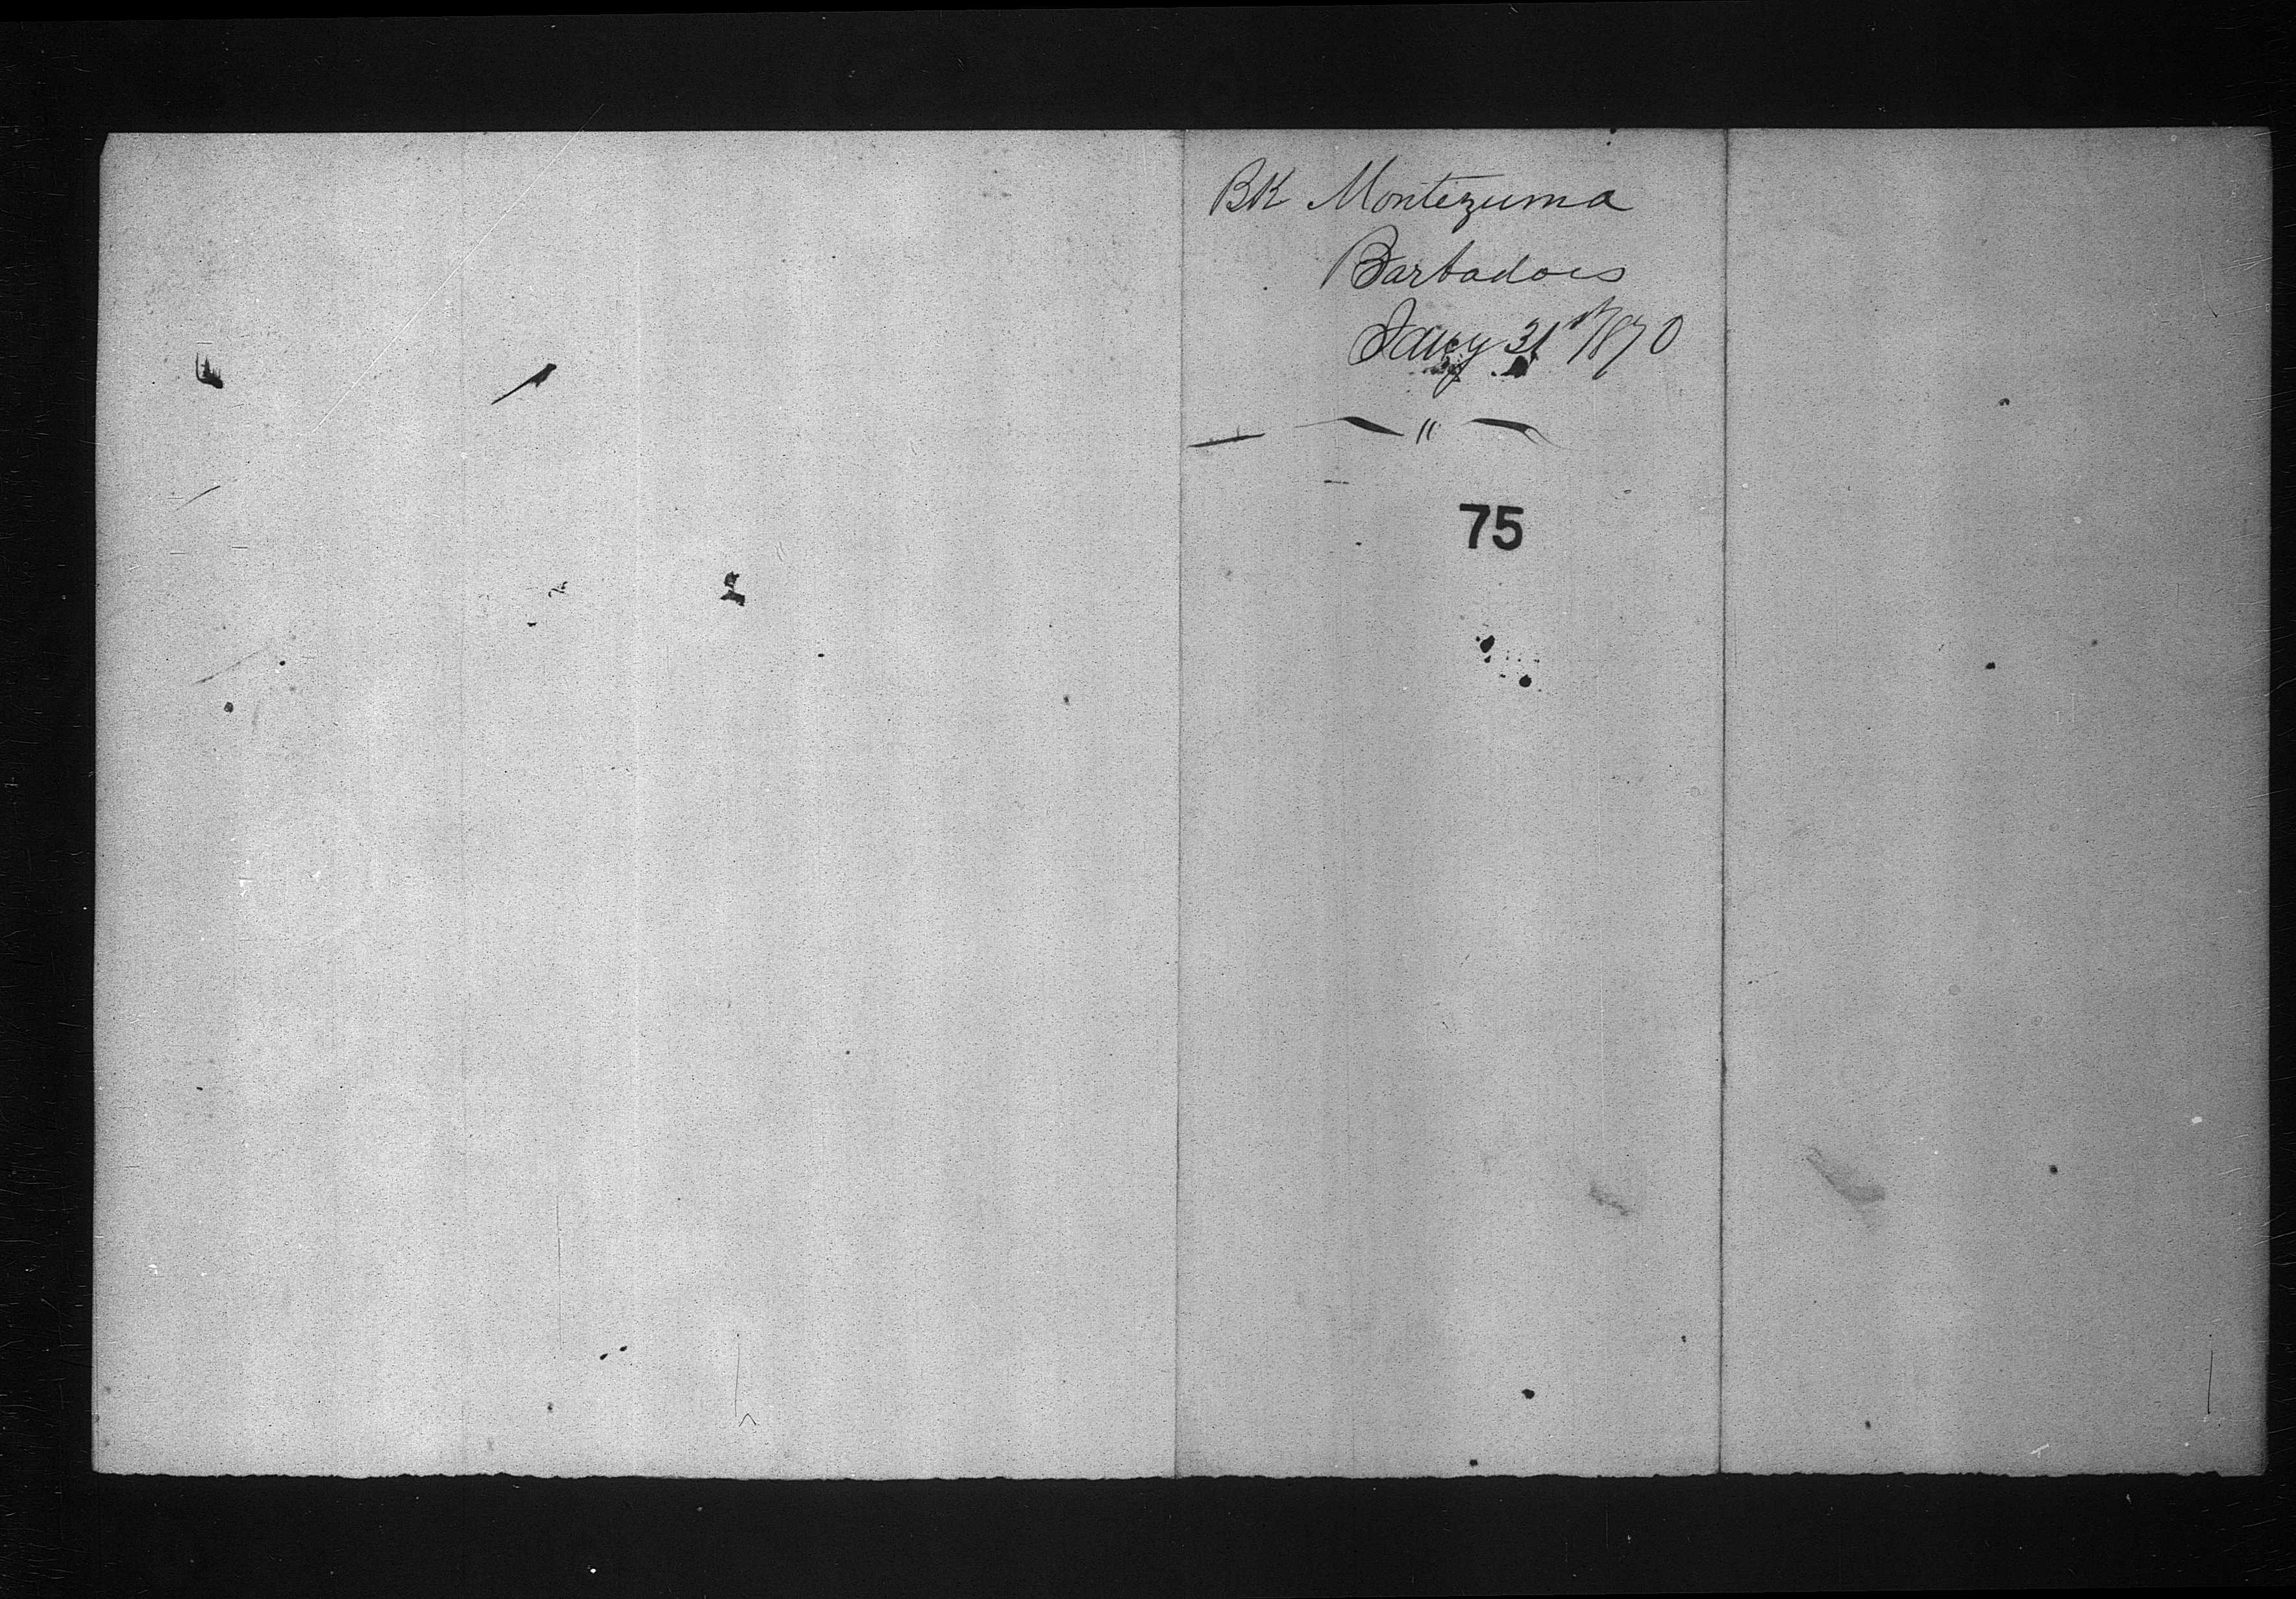 BK Montezuma
Barbadoes
Jany 31st 1870
— — " —
75